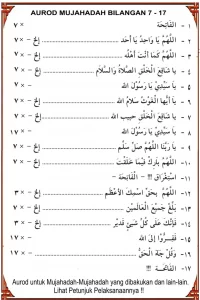 AUROD MUJAHADAH BILANGAN 7 - 17
١ - الفَاتِحَة × ٧
٢ - اَللّٰهُمَّ يَا وَاحِدُ يَا أَحَد ... إلخ - × ٧
٣ - اَللّٰهُمَّ كَمَا أَنْتَ أَهْلُه ... إلخ - × ٧
٤ - يَا شَافِعَ الْخَلْقِ الصَّلَاةُ وَالسَّلَام ... إلخ - × ٧
٥ - يَا سَيِّدِيْ يَا رَسُوْلَ الله - × ٧
٦ - يَا أَيُّهَا الْغَوْثُ سَلَامُ الله ... إلخ - × ٧
٧ - يَا شَافِعَ الْخَلْقِ حَبِيْبَ الله ... إلخ - × ٧
٨ - يَا سَيِّدِيْ يَا رَسُوْلَ الله - × ١٧
٩ - يَا رَبَّنَا اللّٰهُمَّ صَلِّ سَلِّم ... إلخ - × ٧
١٠ - اَللّٰهُمَّ بَارِكْ فِيْمَا خَلَقْتَ ... إلخ - × ٧
١١ - اِسْتِغْرَاق !!! - الْفَاتِحَة -
١٢ - اَللّٰهُمَّ بِحَقِّ اسْمِكَ الْأَعْظَم ... إلخ - × ٣
١٣ - بَلِّغْ جَمِيْعَ الْعَالَمِيْن ... إلخ - × ٧
١٤ - فَإِنَّكَ عَلَى كُلِّ شَيْئٍ قَدِيْر ... إلخ - × ٣
١٥ - فَفِرُّوْا إِلَى الله - × ٧
١٦ - وَقُلْ جَاءَ الْحَقُّ ... إلخ - × ٧
١٧ - الفَاتِحَة !!!
Aurod untuk Mujahadah-Mujahadah yang dibakukan dan lain-lain.
Lihat Petunjuk Pelaksanaannya !!